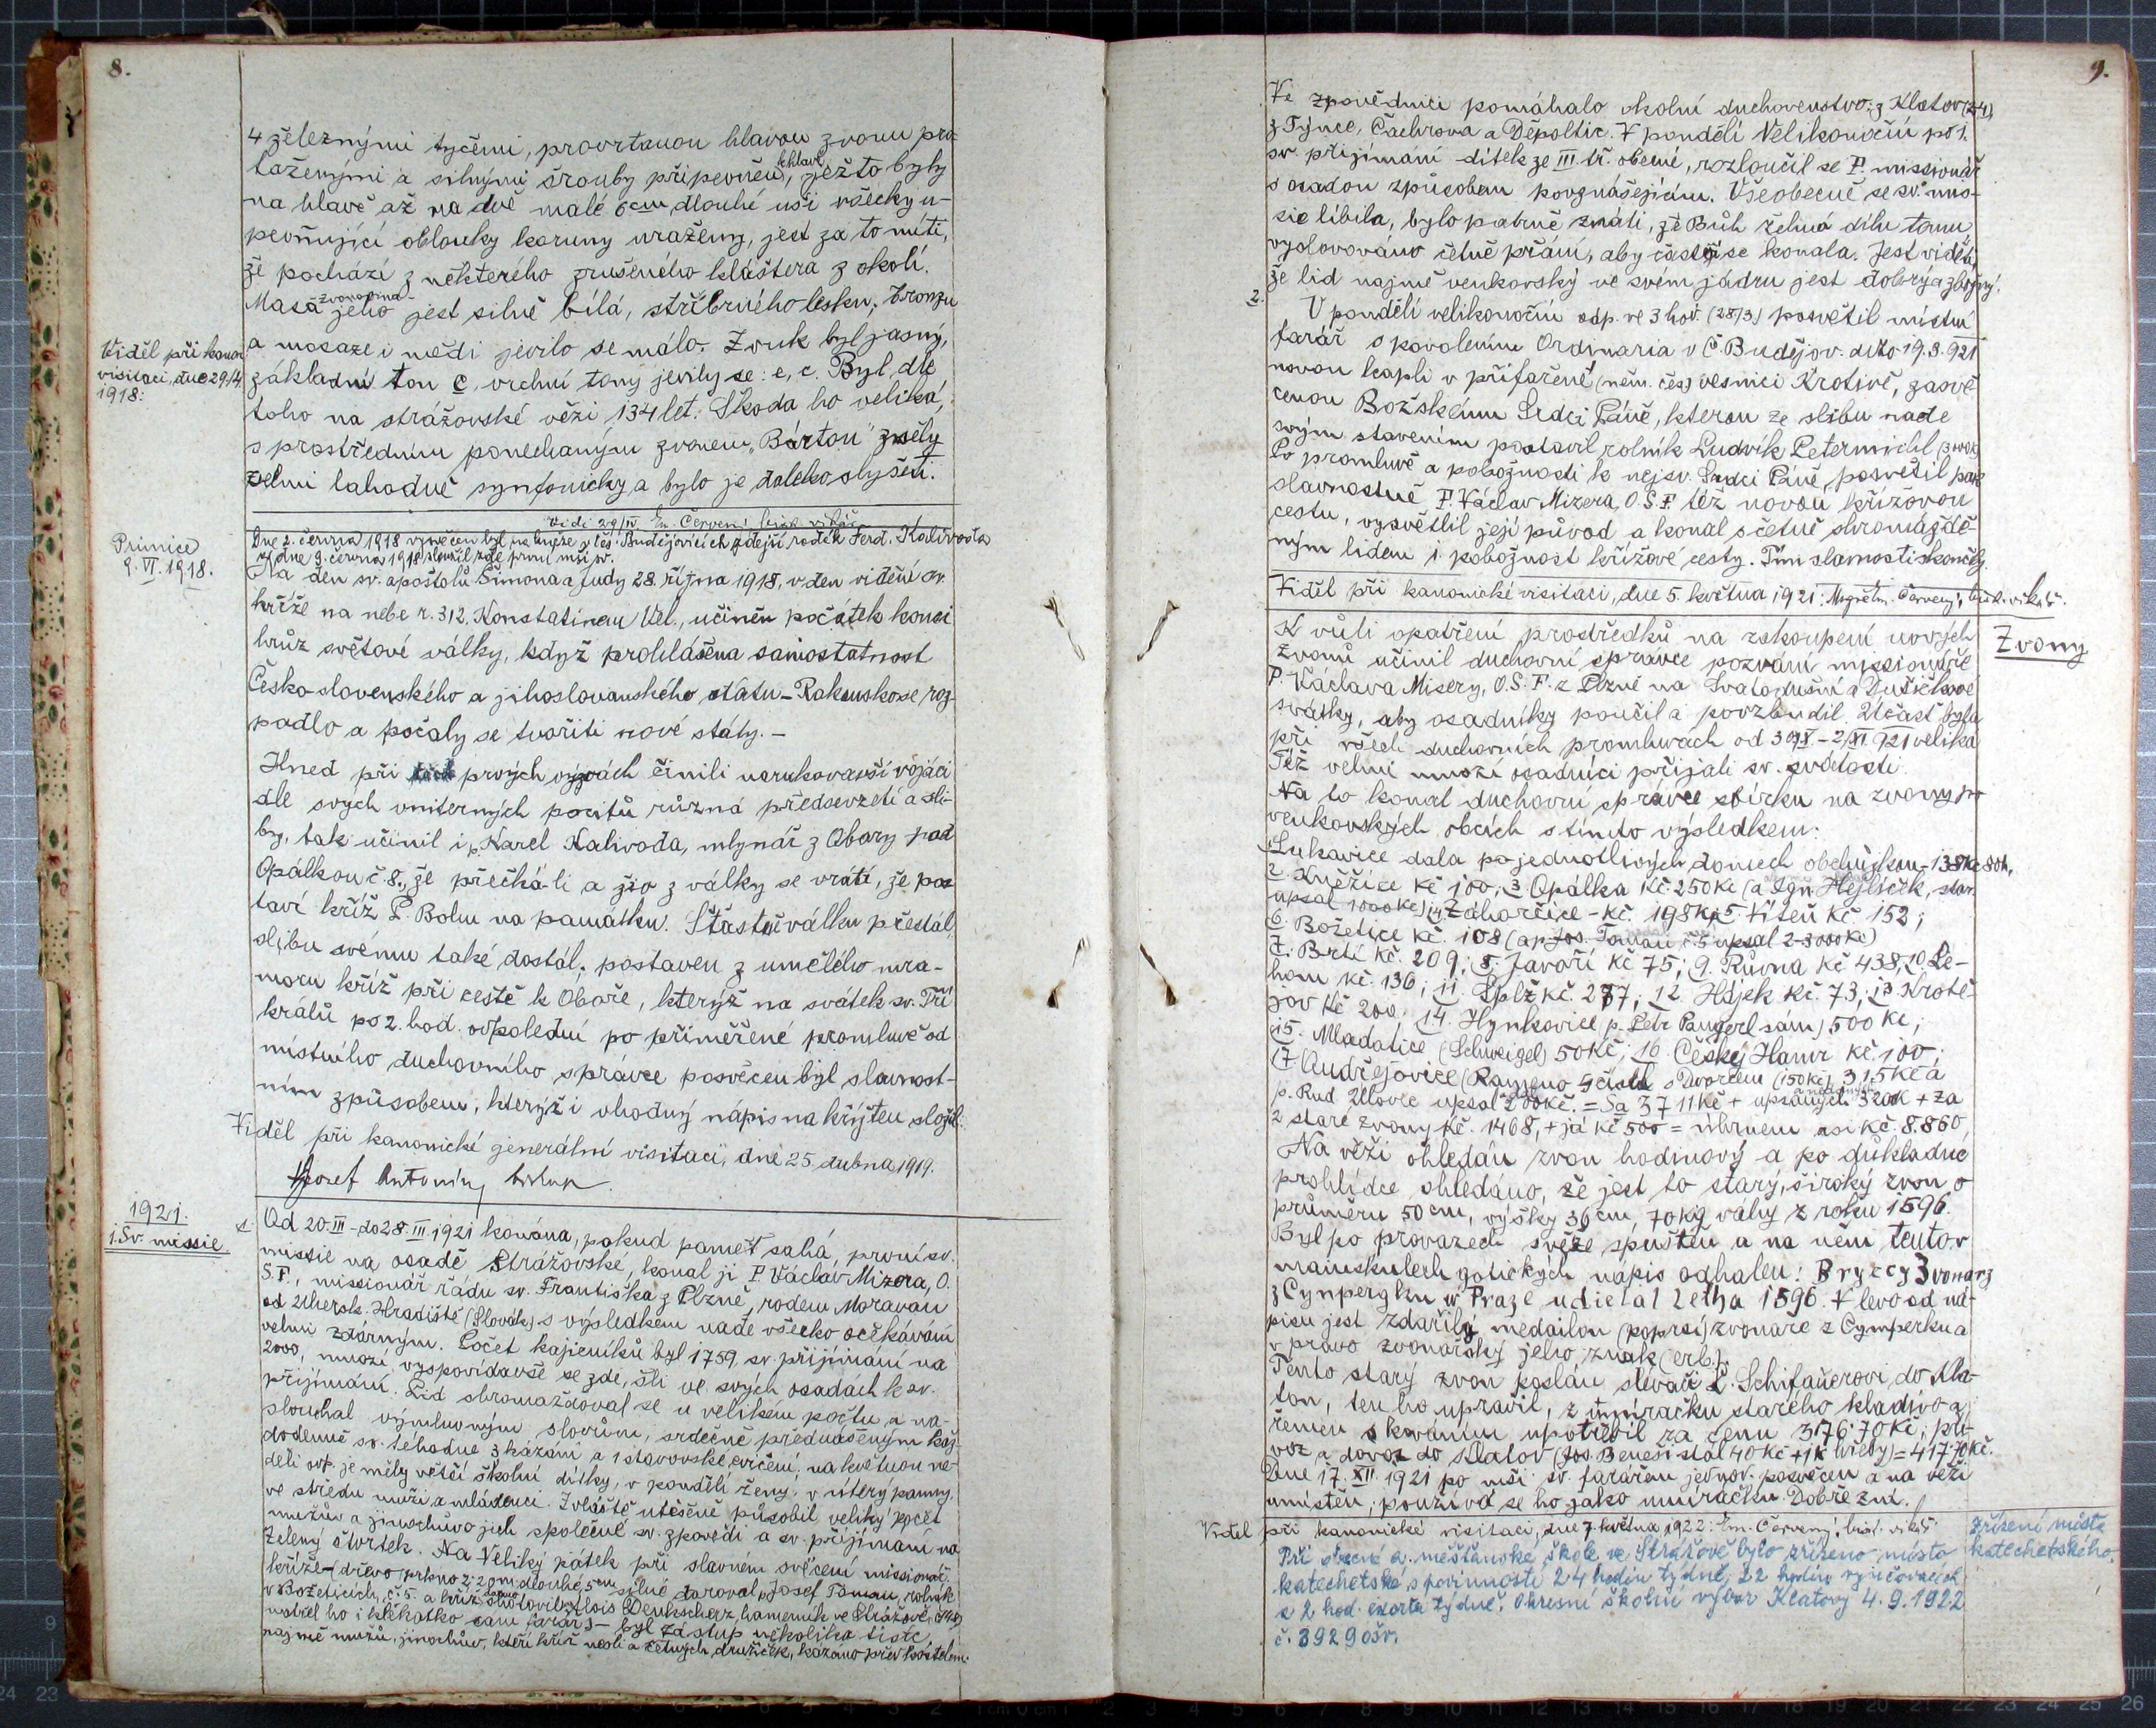 8.
4 železnými tyčemi, provrtanou hlavou zvonu pro-
taženými a silnými šrouby připevněn k hlavě, ježto byly
na hlavě až na dvě malé 6 cm dlouhé uši všecky u-
pevňující oblouky koruny uraženy, jest za to míti,
že pochází z některého zrušeného kláštera z okolí.
Masa zvonovina jeho jest silně bílá, stříbrného lesku; bronzu
a mosaze i mědi jevilo se málo. Zvuk byl jasný,
Viděl při kanon.
visitaci, dne 29./4.
1918:
základní ton c, vrchní tony jevily se: e, c. Byl dle
toho na strážovské věži 134 let. Škoda ho veliká,
s prostředním ponechaným zvonem „Bárton" zněly
velmi lahodně symfonicky a bylo je daleko slyšeti.
Vidi 29/IV. Em. Červený bisk. vikář
Primice
9. VI. 1918.
Dne 2. června 1918 vysvěcen byl na kněze v Čes. Budějovicích zdejší rodák Ferd. Kalivoda
a dne 9. června 1918 sloužil zde první mši sv.
Na den sv. apoštolů Šimona a Judy 28. října 1918, v den vidění sv.
kříže na nebe r. 312, Konstatinem Vel., učiněn počátek konci
hrůz světové války, když prohlášena samostatnost
Česko-slovenského a jihoslovanského státu – Rakousko se roz-
padlo a počaly se tvořiti nové státy. –
Hned při prvých výzvách činili narukovavší vojáci
dle svych vniterných pocitů různá předsevzetí a sli-
by, tak učinil i p. Karel Kalivoda, mlynář z Obory pod
Opálkou č. 8., že přečká-li a živ z války se vrátí, že pos-
taví kříž P. Bohu na památku. Šťastně válku přestál,
slibu svému také dostál; postaven z umělého mra-
moru kříž při cestě k Oboře, kterýž na svátek sv. Tří
králů po 2. hod. odpolední po přiměřené promluvě od
místního duchovního správce posvěcen byl slavnost-
ním způsobem, kterýž i vhodný nápis na krýž ten složil.
Viděl při kanonické generální visitaci, dne 25. dubna 1919.
Josef Antonín, biskup.
1921.
1. Sv. missie.
1. Od 20. III – do 28. III. 1921 konána, pokud paměť sahá, první sv.
missie na osadě Strážovské, konal ji P. Václav Mizera, O.
S. F., missionář řádu sv. Františka z Plzně, rodem Moravan
od Uhersk. Hradiště (Slovák) s výsledkem nade všecko očekávání
velmi zdárným. Počet kajicníků byl 1759, sv. přijímání na
2000, mnozí vyspovídavše se zde, šli ve svých osadách k sv.
přijímání. Lid shromažďoval se u velikém počtu a na-
slouchal výmluvným slovům, srdečně přednášeným kaž-
dodenně sv. téhodne 3 kázání a 1 stavovské cvičení; na květnou ne-
děli odp. je měly větší školní dítky, v pondělí ženy, v úterý panny,
ve středu muži a mládenci. Zvláště utěšeně působil veliký počet
mužův a jinochův o jich společné sv. zpovědi a sv. přijímání na
Zelený čtvrtek. Na Veliký pátek při slavném svěcení missionář.
kříže (dřevo, prkno 2·20 m dlouhé, 5 cm silné daroval p. Josef Toman, rolník
v Božeticích, č. 5. a kříž zhotovil Alois Denkscherz, hamerník ve Strážově, č. 48)
natřel ho i klekátko sám farář) – byl zástup několika tisíc,
najmě mužů, jinochův, kteří kříž nesli a četných družiček, kázáno před kostelem.
9.
Ve zpovědnici pomáhalo okolní duchovenstvo: z Klatov (24),
z Týnce, Čachrova a Děpoltic. V pondělí Velikonoční po 1.
sv. přijímání dítek ze III. tř. obecné, rozloučil se P. missionář
s osadou způsobem povznášejícím. Všeobecně se sv. mis-
sie líbila, bylo patrně znáti, že Bůh žehná dílu tomu,
vyslovováno četné přání, aby častěji se konala. Jest viděti,
že lid najmě venkovský ve svém jádru jest dobrý a zbožný.
2. V pondělí velikonoční odp. ve 3 hod. (28/3.) posvětil místní
farář s povolením Ordinaria v Č. Budějov. ddto 19. 3. 921
novou kapli v přifařené (něm. čes.) vesnici Krotivě, zasvě-
cenou Božskému Srdci Páně, kterou ze slibu nade
svým stavením postavil rolník Ludvík Petermichl
Po promluvě a pobožnosti k nejsv. Srdci Páně, posvětil pak
slavnostně P. Václav Mizera, O. S. F. též novou křížovou
cestu, vysvětlil její původ a konal s četně shromážděn-
ným lidem i pobožnost křížové cesty. Tím slavnosti skončily.
Viděl při kanonické visitaci, dne 5. května 1921. Červený, bisk. vikář.
Zvony
K vůli opatření prostředků na zakoupení nových
zvonů učinil duchovní správce pozvání missionáře
P. Václava Misery, O. S. F. z Plzně na Svatodušní a Dušičkové
svátky, aby osadníky poučil a povzbudil. Účast byla
při všech duchovních promluvách od 30/X – 2/XI. 921 veliká
Též velmi mnozí osadníci přijali sv. svátosti.
Na to konal duchovní správce sbírku na zvony po
venkovských obcích s tímto výsledkem:
Lukavice dala po jednotlivých domech obchůzkou – 138 Kč 80 h,
2. Kněžice Kč 100; 3. Opálka Kč 250 Kč (a Ign. Hejlíček, star.
upsal 1000 Kč) 4. Zahorčice – Kč. 198 Kč; 5. Víteň Kč 152;
6. Božetice Kč. 108 (a p. Jos. Toman č. 5 upsal 2-3000 Kč)
7. Brtí Kč. 209; 8. Javoří Kč 75; 9. Růvna Kč 438; 10. Le-
hom Kč. 136; 11. Splž Kč. 277; 12. Hájek Kč. 73; 13. Krotě-
jov Kč 200. 14. Hynkovice p. Petr Pangerl sám) 500 Kč;
15. Mladotice (Schweigel) 50 Kč; 16. Český Hamr Kč. 100;
17 Andrejovice ( s Dvorcem (150 Kč) 315 Kč a
p. Rud upsal 200 Kč. = Sa 3711 Kč + upsaných 3200 K + za
2 staré zvony Kč. 1468, + já Kč 500 = úhrnem asi Kč. 8.860
Na věži ohledán zvon hodinový a po důkladné
prohlídce shledáno, že jest to starý, široký zvon o
průměru 50 cm, výšky 36 cm, 70 kg váhy z roku 1596.
Byl po provazech s věže spuštěn a na něm tentov
maiuskulech gotických nápis odhalen: Bryccy Zvonarz
z Cynpergku w Praze udielal Letha 1596. V levo od ná-
pisu jest zdařilý medailon (poprsí) zvonaře z Cymperku a
v pravo zvonařský jeho znak (erb).
Tento starý zvon poslán slévači L. Schifauerovi, do Kla-
tov, ten ho upravil, z umíráčku starého kladivo a
řemen s kováním upotřebil za cenu 3176·70 Kč; pří-
voz a dovoz do Klatov (Jos. Beneš stál 40 Kč + = 417·70 Kč.
Dne 17. XII. 1921 po mši sv. farářem jednod. posvěcen a na věži
umístěn; používá se ho jako umíráčku. Dobře zní.
Viděl při kanonické visitaci, dne 7. května 1922: Em. Červený, bisk. vikář
Zřízení místa
katechetského.
Při obecné a. měšťanské škole ve Strážově bylo zřízeno místo
katechetské s povinností 24 hodin týdně, 22 hodin vyučovacích
a 2 hod. exorta týdně. Okresní školní výbor Klatovy 4. 9. 1922
č. 3929 ošv.